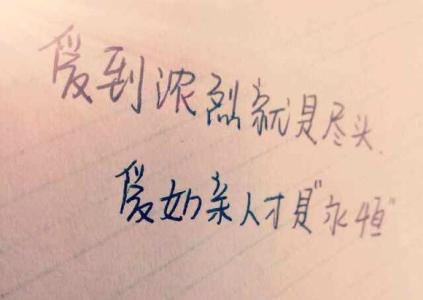 爱到浓烈就是尽头.
爱如亲人才是"永恒"